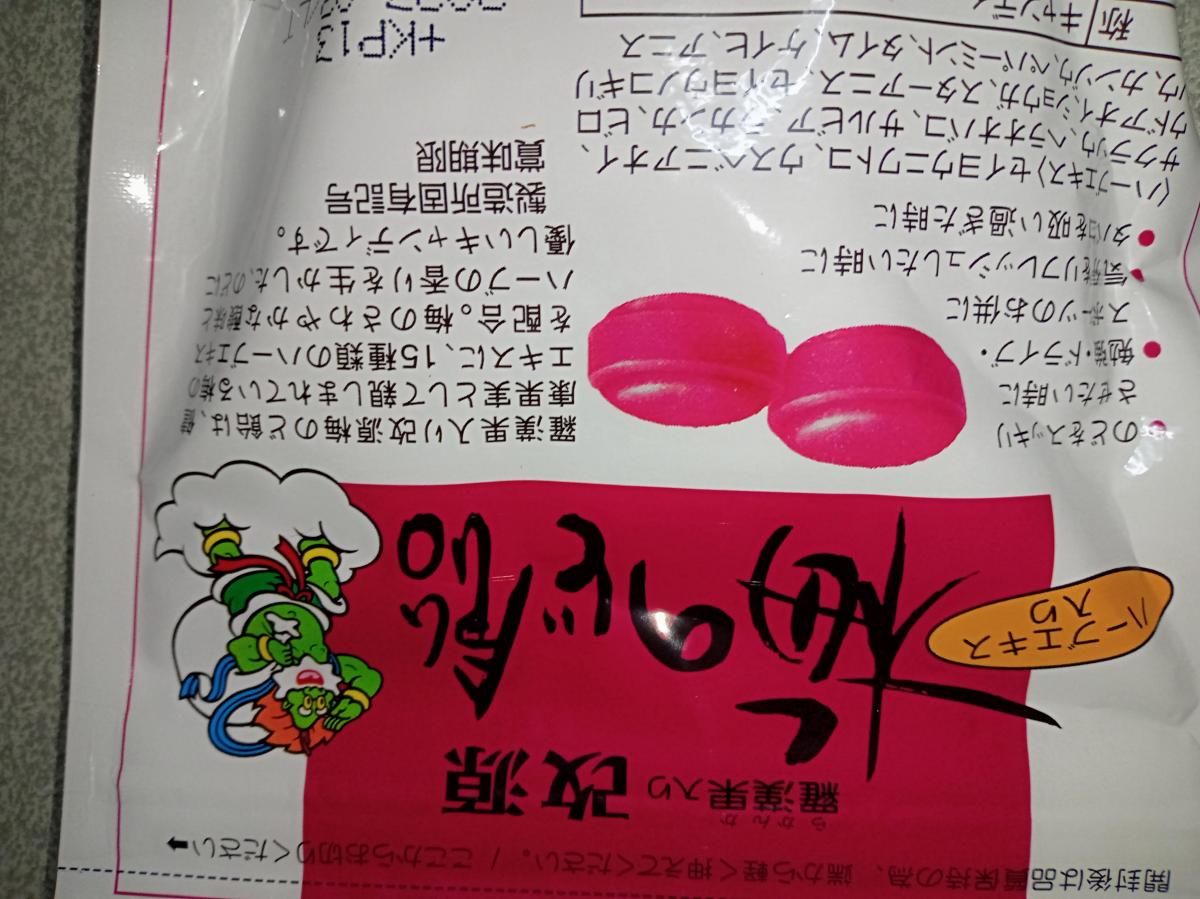 開封後は品質保持の為、端から軽く押えてください。/ ここからお切りください➡
らかんか
羅漢果入り 改源
梅のど飴
ハーブエキス
入り
●のどをスッキリ
させたい時に
●勉強・ドライブ・
スポーツのお供に
●気分をリフレッシュしたい時に
●タバコを吸い過ぎた時に
羅漢果入り改源梅のど飴は、健
康果実として親しまれている梅の
エキスに、15種類のハーブエキス
を配合。梅のさわやかな酸味と
ハーブの香りを生かした、のどに
優しいキャンディです。
製造所固有記号
賞味期限
+KP13
〈ハーブエキス〉セイヨウニワトコ、ウスベニアオイ、
サクラソウ、ヘラオオバコ、サルビア、ラカンカ、ビロ
ウドアオイ、ショウガ、スターアニス、セイヨウノコギリ
ソウ、カンゾウ、ペパーミント、タイム、ケイヒ、アニス
称 キャンディ